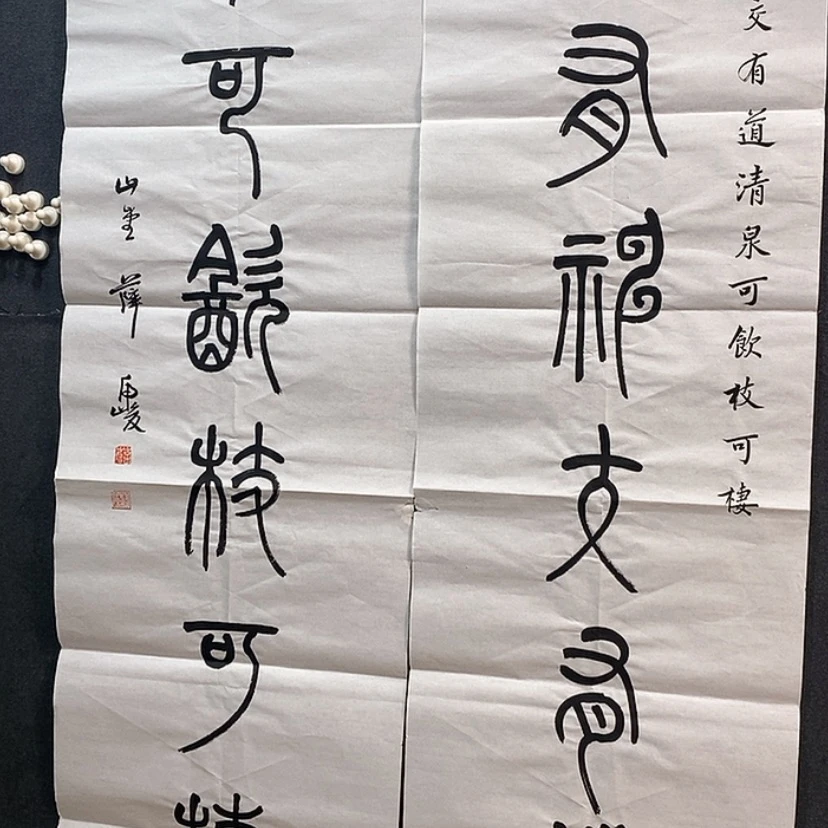 交有道清泉可飲枝可棲
有神交有
可飲枝可
山堂 薛